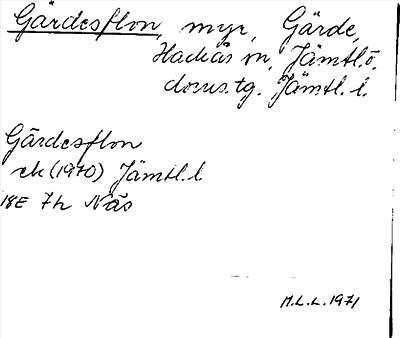 Gärdesflon, myr, Gärde,
Hackås sn, Jämtl.ö.
doms.tg. Jämtl. l.
Gärdesflon
ek (1970) Jämtl. l
18E 7h Näs
M.L.L. 1971